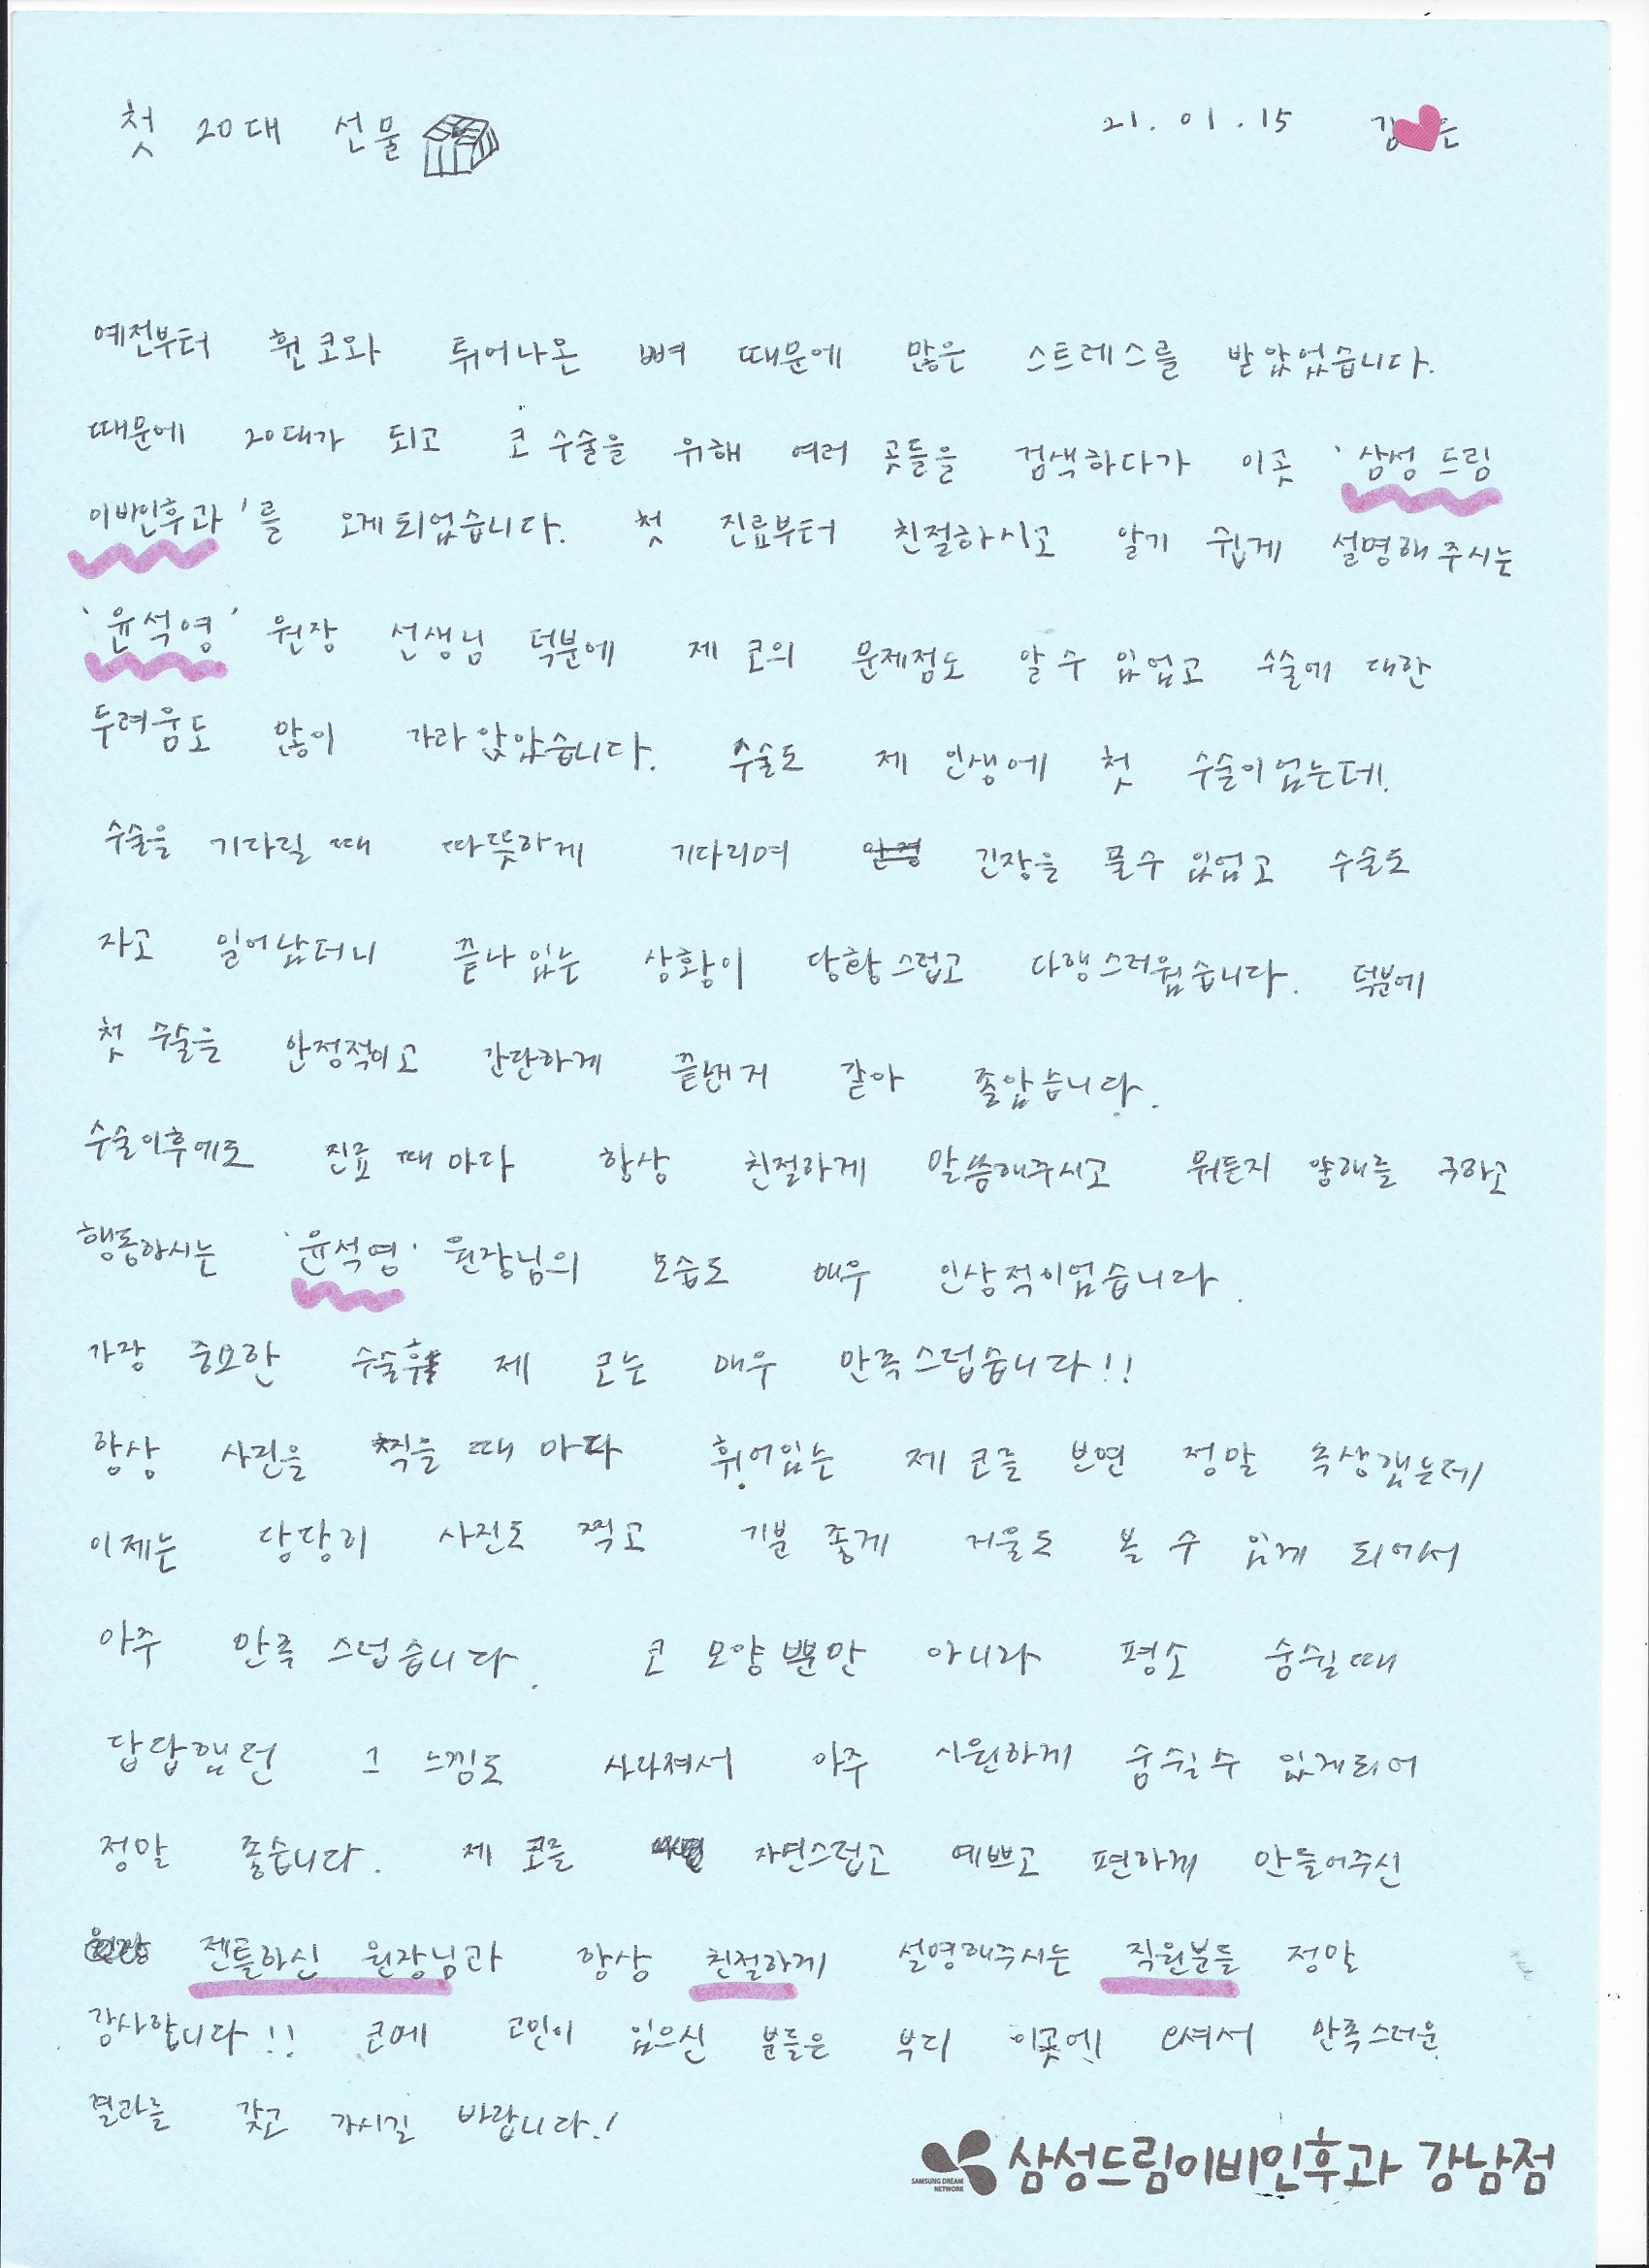 첫 20대 선물 21. 01. 15 김 은
예전부터 휜 코와 튀어나온 뼈 때문에 많은 스트레스를 받았었습니다.
때문에 20대가 되고 코 수술을 위해 여러 곳들을 검색하다가 이곳 '삼성 드림
이비인후과'를 오게되었습니다. 첫 진료부터 친절하시고 알기 쉽게 설명해 주시는
'윤석영' 원장 선생님 덕분에 제 코의 문제점도 알 수 있었고 수술에 대한
두려움도 많이 가라 앉았습니다. 수술도 제 인생에 첫 수술이었는데
수술을 기다릴 때 따뜻하게 기다리며 긴장을 풀수 있었고 수술도
자고 일어났더니 끝나 있는 상황이 당황스럽고 다행스러웠습니다. 덕분에
첫 수술을 안정적이고 간단하게 끝낸거 같아 좋았습니다.
수술이후에도 진료 때 마다 항상 친절하게 말씀해주시고 뭐든지 양해를 구하고
행동하시는 '윤석영' 원장님의 모습도 매우 인상적이었습니다.
가장 중요한 수술후 제 코는 매우 만족스럽습니다!!
항상 사진을 찍을 때 마다 휘어있는 제 코를 보면 정말 속상했는데
이제는 당당히 사진도 찍고 기분 좋게 거울도 볼 수 있게 되어서
아주 만족 스럽습니다. 코 모양 뿐만 아니라 평소 숨쉴때
답답했던 그 느낌도 사라져서 아주 시원하게 숨쉴수 있게되어
정말 좋습니다. 제 코를 자연스럽고 예쁘고 편하게 만들어주신
젠틀하신 원장님과 항상 친절하게 설명해주시는 직원분들 정말
감사합니다!! 코에 고민이 있으신 분들은 부디 이곳에 오셔서 만족스러운
결과를 갖고 가시길 바랍니다!
SAMSUNG DREAM NETWORK 삼성드림이비인후과 강남점